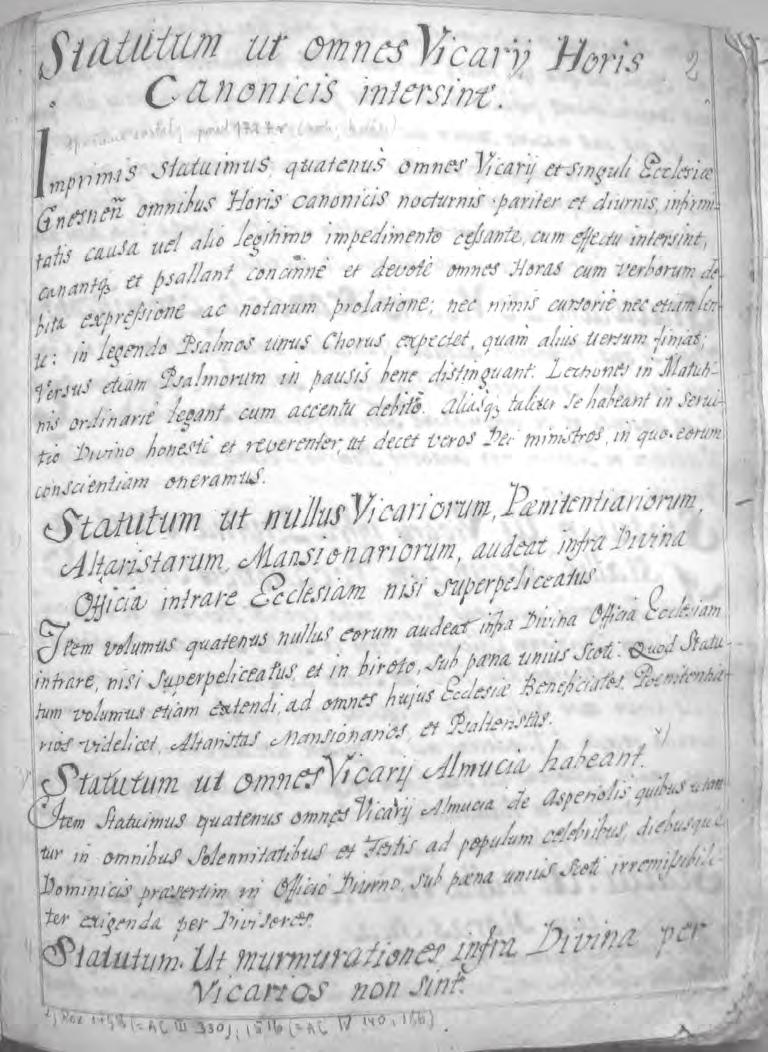 Statutum ut omnes Vicarij Horis 2
Canonicis intersint.
Imprimis statuimus, quatenus omnes Vicarij et singuli Ecclesiæ
Gnesneñ omnibus Horis canonicis nocturnis pariter et diurnis, infirmi-
tatis causa uel alio legitimo impedimento cessante, cum effectu intersint,
canantq; et psallant concinne et devote omnes Horas cum verborum de-
bita expressione ac notarum prolatione; nec nimis cursorie nec etiam len-
te: in legendo Psalmos unus Chorus expectet, quam alius uersum finiat;
Versus etiam Psalmorum in pausis bene distinguant. Lectiones in Matuti-
nis ordinarie legant cum accentu debito. Aliasq; taliter se habeant in Serui-
tio Divino honeste et reverenter, ut decet veros Dei ministros, in quo eorum
conscientiam oneramus.
Statutum ut nullus Vicariorum, Pænitentiariorum,
Altaristarum, Mansionariorum, audeat infra Divina
Officia intrare Ecclesiam nisi superpeliceatus
Item volumus quatenus nullus eorum audeat infra Divina Officia Ecclesiam
intrare, nisi superpeliceatus, et in bireto, sub pæna unius scoti. Quod Statu-
tum volumus etiam extendi, ad omnes hujus Ecclesiæ Beneficiatos. Poenitentia-
rios videlicet, Altaristas Mansionarios, et Psalteristas.
Statutum ut omnes Vicarij Almucia habeant. x)
Item Statuimus quatenus omnes Vicarij Almucia de Asperiolis quibus utan-
tur in omnibus Solennitatibus et Festis ad populum celebribus, diebusque
Dominicis præsertim in Officio Diuino, sub pæna unius Scoti irremissibili-
ter exigenda per Divisores.
Statutum. Ut murmurationes infra Divina per
Vicarios non sint.
x) 1458 (= AC III 330), 1516 (= AC IV 140, 166).